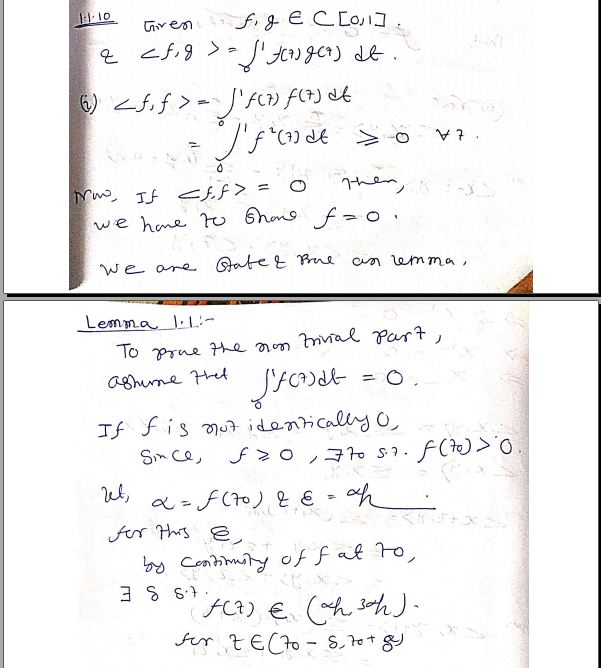 1.1.10 Given f, g ∈ C[0,1].
& <f,g> = ∫₀¹ f(t)g(t) dt.
(i) <f,f> = ∫₀¹ f(t) f(t) dt
= ∫₀¹ f²(t) dt ≥ 0 ∀ t.
Now, If <f,f> = 0 then,
we have to show f = 0.
we are state & prove an lemma,
Lemma 1.1:-
To prove the non trivial part,
assume that ∫₀¹ f(t) dt = 0.
If f is not identically 0,
Since, f ≥ 0, ∃ t₀ s.t. f(t₀) > 0.
let, α = f(t₀) & ε = α/2
for this ε,
by continuity of f at t₀,
∃ δ s.t.
f(t) ∈ (α/2 3α/2).
for t ∈ (t₀ - δ, t₀ + δ)